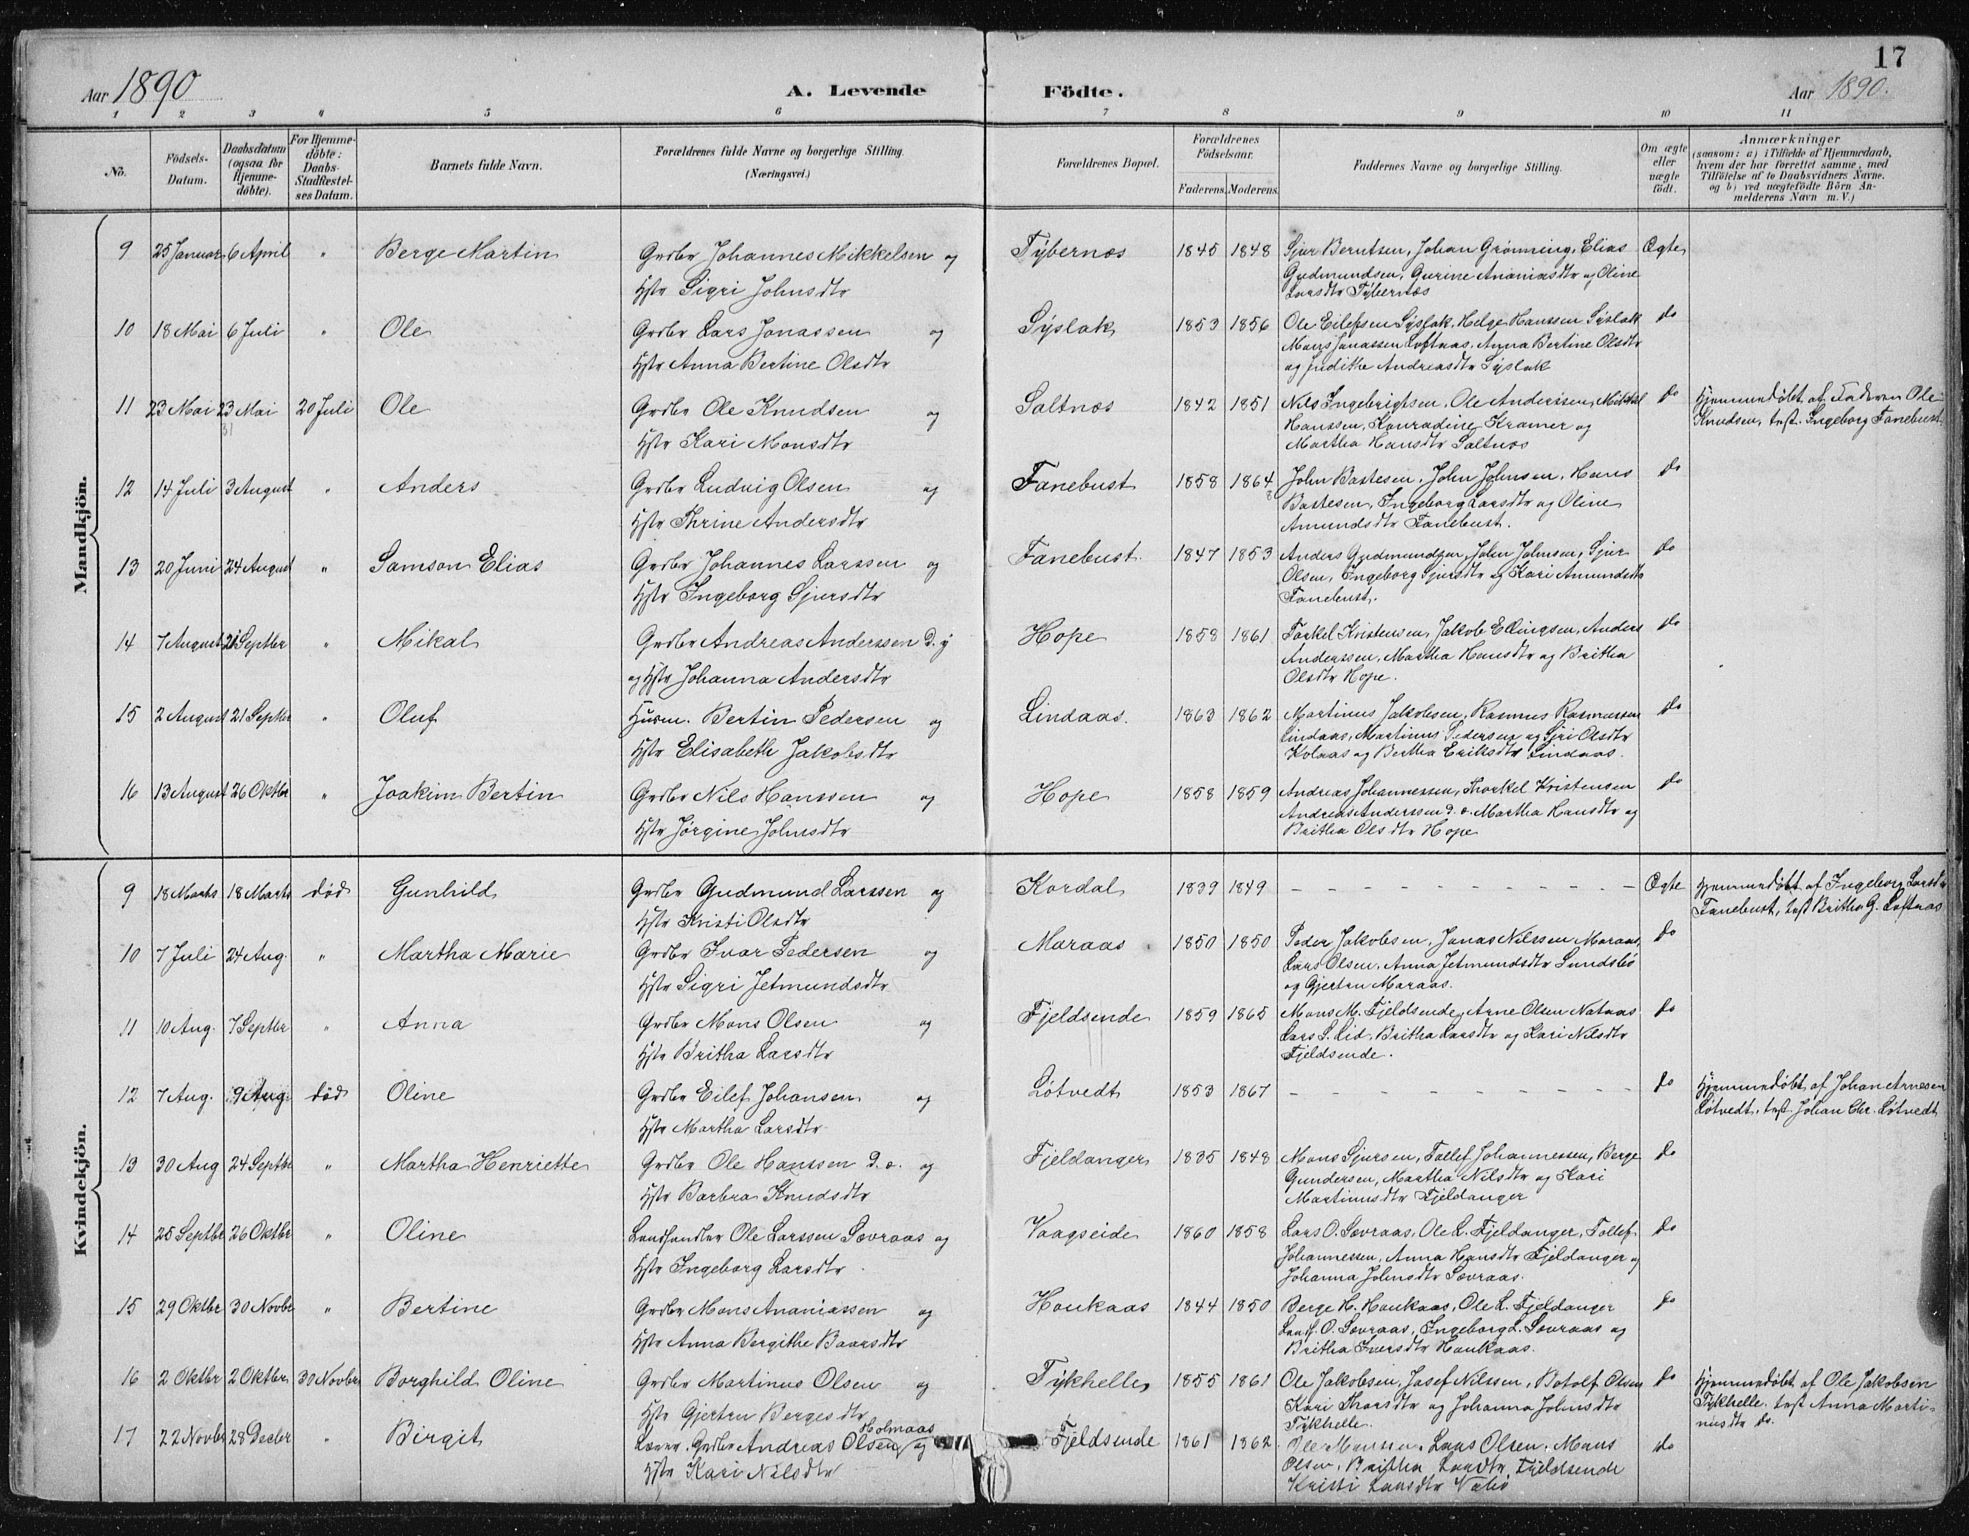 17
Aar 1890 A. Levende Födte. Aar 1890.
1 2 3 4 5 6 7 8 9 10 11
No. Födsels-Datum. Daabsdatum (ogsaa for Hjemme-döbte). For Hjemme-döbte: Daabs-Stadfæstel-ses Datum. Barnets fulde Navn. Forældrenes fulde Navne og borgerlige Stilling. (Næringsvei.) Forældrenes Bopæl. Forældrenes Födselsaar. Faderens. Moderens. Faddernes Navne og borgerlige Stilling. Om ægte eller uægte födt. Anmærkninger (saasom: a) i Tilfælde af Hjemmedaab, hvem der har forrettet samme, med Tilföielse af to Daabsvidners Navne. og b) ved uægtefödte Börn An-melderens Navn m. V.)
Mandkjön.
9 25 Januar 6 April " Berge Martin Grdbr Johannes Mikkelsen og Tÿbernæs 1845 1848 Sjur Berntsen, Johan Grønning, Elias Ægte
Hstr Sigri Johnsdtr Gudmundsen, Gurine Ananiasdtr og Oline
Larsdtr Tÿbernæs
10 18 Mai 6 Juli " Ole Grdbr Lars Jonassen og Sÿslak 1853 1856 Ole Eilefsen Sÿslak, Helge Hanssen Sÿslak do
Hstr Anna Bertine Olsdtr Mons Jonassen Loftaas, Anna Bertine Olsdtr
og Judithe Andreasdtr Sÿslak
11 23 Mai 23 Mai 20 Juli Ole Grdbr Ole Knudsen og Saltnæs 1842 1851 Nils Ingebrigtsen, Ole Anderssen, Mikkel do Hjemmedøbt af Faderen Ole
31 Hstr Kari Monsdtr Hanssen, Konradine Kramer og Knudsen, test. Ingeborg Fanebust
Martha Hansdtr Saltnæs
12 14 Juli 3 August " Anders Grdbr Ludvig Olsen og Fanebust 1858 1864 John Bastesen, John Johnsen, Hans do
Hstr Thrine Andersdtr 8 Bastesen, Ingeborg Larsdtr og Oline
Amundsdtr Fanebust.
13 20 Juni 24 August " Samson Elias Grdbr Johannes Larssen og Fanebust 1847 1853 Anders Gudmundsen, John Johnsen, Sjur do
Hstr Ingeborg Sjursdtr Olsen, Ingeborg Sjursdtr og Kari Amundsdtr
Fanebust.
14 7 August 21 Septbr " Mikal Grdbr Andreas Anderssen d. y Hope 1859 1861 Torkel Kristensen, Jakob Ellingsen, Anders do
og Hstr Johanna Andersdtr Anderssen, Martha Hansdtr og Britha
Olsdtr Hope.
15 2 August 21 Septbr " Oluf Husm. Bertin Pedersen og Lindaas. 1863 1862 Martinus Jakobsen, Rasmus Rasmussen do
Hstr Elisabeth Jakobsdtr Lindaas, Martinus Pedersen og Siri Olsdtr
Kolaas og Bertha Eriksdtr Lindaas.
16 13 August 26 Oktbr " Joakim Bertin Grdbr Nils Hanssen og Hope 1858 1859 Andreas Johannessen, Thorkel Kristensen do
Hstr Jørgine Johnsdtr Andreas Anderssen d. e. Martha Hansdtr og
Britha Olsdtr Hope
Kvindekjön.
9 18 Marts 18 Marts død Gunhild Grdbr Gudmund Larssen og Kordal 1839 1849 – – – – Ægte Hjemmedøbt af Ingeborg Larsdtr
Hstr Kristi Olsdtr Fanebust, test Britha G. Loftaas
10 7 Juli 24 Aug. " Martha Marie Grdbr Ivar Pedersen og Maraas 1850 1850 Peder Jakobsen, Jonas Nilssen Maraas, do
Hstr Sigri Jetmundsdtr Lars Olsen, Anna Jetmundsdtr Sundsbø
og Gjertru Maraas.
11 10 Aug. 7 Septbr " Anna Grdbr Mons Olsen og Fjeldsende 1859 1865 Mons M. Fjeldsende, Arne Olsen Nataas do
Hstr Britha Larsdtr Lars S. Lid, Britha Larsdtr og Kari Nilsdtr
Fjeldsende.
12 7 Aug. 9 Aug. død Oline Grdbr Eilef Johansen og Løtvedt 1853 1867 – – – – do Hjemmedøbt af Johan Arnesen
Hstr Martha Larsdtr Løtvedt, test. Johan Chr. Løtvedt
13 30 Aug 24 Septbr " Martha Henriette Grdbr Ole Hanssen d. e. og Fjeldanger 1835 1848 Mons Sjursen, Tollef Johannessen, Berge do
Hstr Barbra Knudsdtr Gundersen, Martha Nilsdtr og Kari
Martinusdtr Fjeldanger
14 25 Septbr 26 Oktbr " Oline Landhandler Ole Larssen Sovraas og Vaagseide 1860 1858 Lars O. Sovraas, Ole L. Fjeldanger, Tollef do
Hstr Ingeborg Larsdtr Johannessen, Anna Hansdtr Fjeldanger og
Johanna Johnsdtr Sovraas.
15 29 Oktbr 30 Novbr " Bertine Grdbr Mons Ananiassen og Haukaas 1844 1850 Berge H. Haukaas, Ole L. Fjeldanger do
Hstr Anna Bergithe Baarsdtr Landh. O. Sovraas, Ingeborg L. Sovraas og
Britha Iversdtr Haukaas.
16 2 Oktbr 2 Oktbr 30 Novbr Borghild Oline Grdbr Martinus Olsen og Tÿkhelle 1855 1861 Ole Jakobsen, Josef Nilssen, Botolf Olsen do Hjemmedøbt af Ole Jakobsen
Hstr Gjertru Bergesdtr Kari Thorsdtr og Johanna Johnsdtr Tÿkhelle, test Anna Marti-
Tÿkhelle. nusdtr do.
Holmaas
17 22 Novbr 28 Decbr " Birgit Lærer, Grdbr Andreas Olsen og Fjeldsende 1861 1862 Ole Monssen, Lars Olsen, Mons do
Hstr Kari Nilsdtr Olsen, Britha Larsdtr, Fjeldsende
Kristi Larsdtr